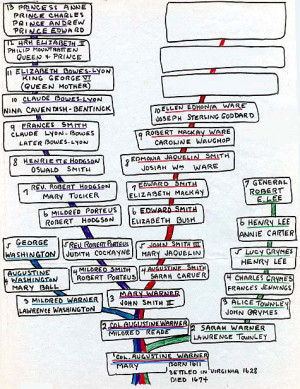 13 PRINCESS ANNE
PRINCE CHARLES
PRINCE ANDREW
PRINCE EDWARD
12 HRH ELIZABETH II
PHILIP MOUNTBATTEN
QUEEN & PRINCE
11 ELIZABETH BOWES-LYON
KING GEORGE VI
(QUEEN MOTHER)
10 CLAUDE BOWES-LYON
NINA CAVENDISH-BENTINCK
9 FRANCES SMITH
CLAUDE LYON-BOWES
LATER BOWES-LYON
8 HENRIETTE HODGSON
OSWALD SMITH
7 REV. ROBERT HODGSON
MARY TUCKER
6 MILDRED PORTEUS
ROBERT HODGSON
5 GEORGE
WASHINGTON
5 REV. ROBERT PORTEUS
JUDITH COCKAYNE
4 AUGUSTINE
WASHINGTON
MARY BALL
4 MILDRED SMITH
ROBERT PORTEUS
3 MILDRED WARNER
LAWRENCE WASHINGTON
10 ELLEN EDMONIA WARE
JOSEPH STERLING GODDARD
9 ROBERT MACKAY WARE
CAROLINE WAUGHOP
8 EDMONIA JAQUELIN SMITH
JOSIAH WM WARE
7 EDWARD SMITH
ELIZABETH MACKAY
6 EDWARD SMITH
ELIZABETH BUSH
5 JOHN SMITH III
MARY JAQUELIN
4 AUGUSTINE SMITH
SARAH CARVER
3 MARY WARNER
JOHN SMITH II
7 GENERAL
ROBERT
E. LEE
6 HENRY LEE
ANNIE CARTER
5 LUCY GRYMES
HENRY LEE
4 CHARLES GRYMES
FRANCES JENNINGS
3 ALICE TOWNLEY
JOHN GRYMES
2 COL. AUGUSTINE WARNER
MILDRED READE
2 SARAH WARNER
LAWRENCE TOWNLEY
1 COL. AUGUSTINE WARNER
MARY
BORN 1611
SETTLED IN VIRGINIA 1628
DIED 1674